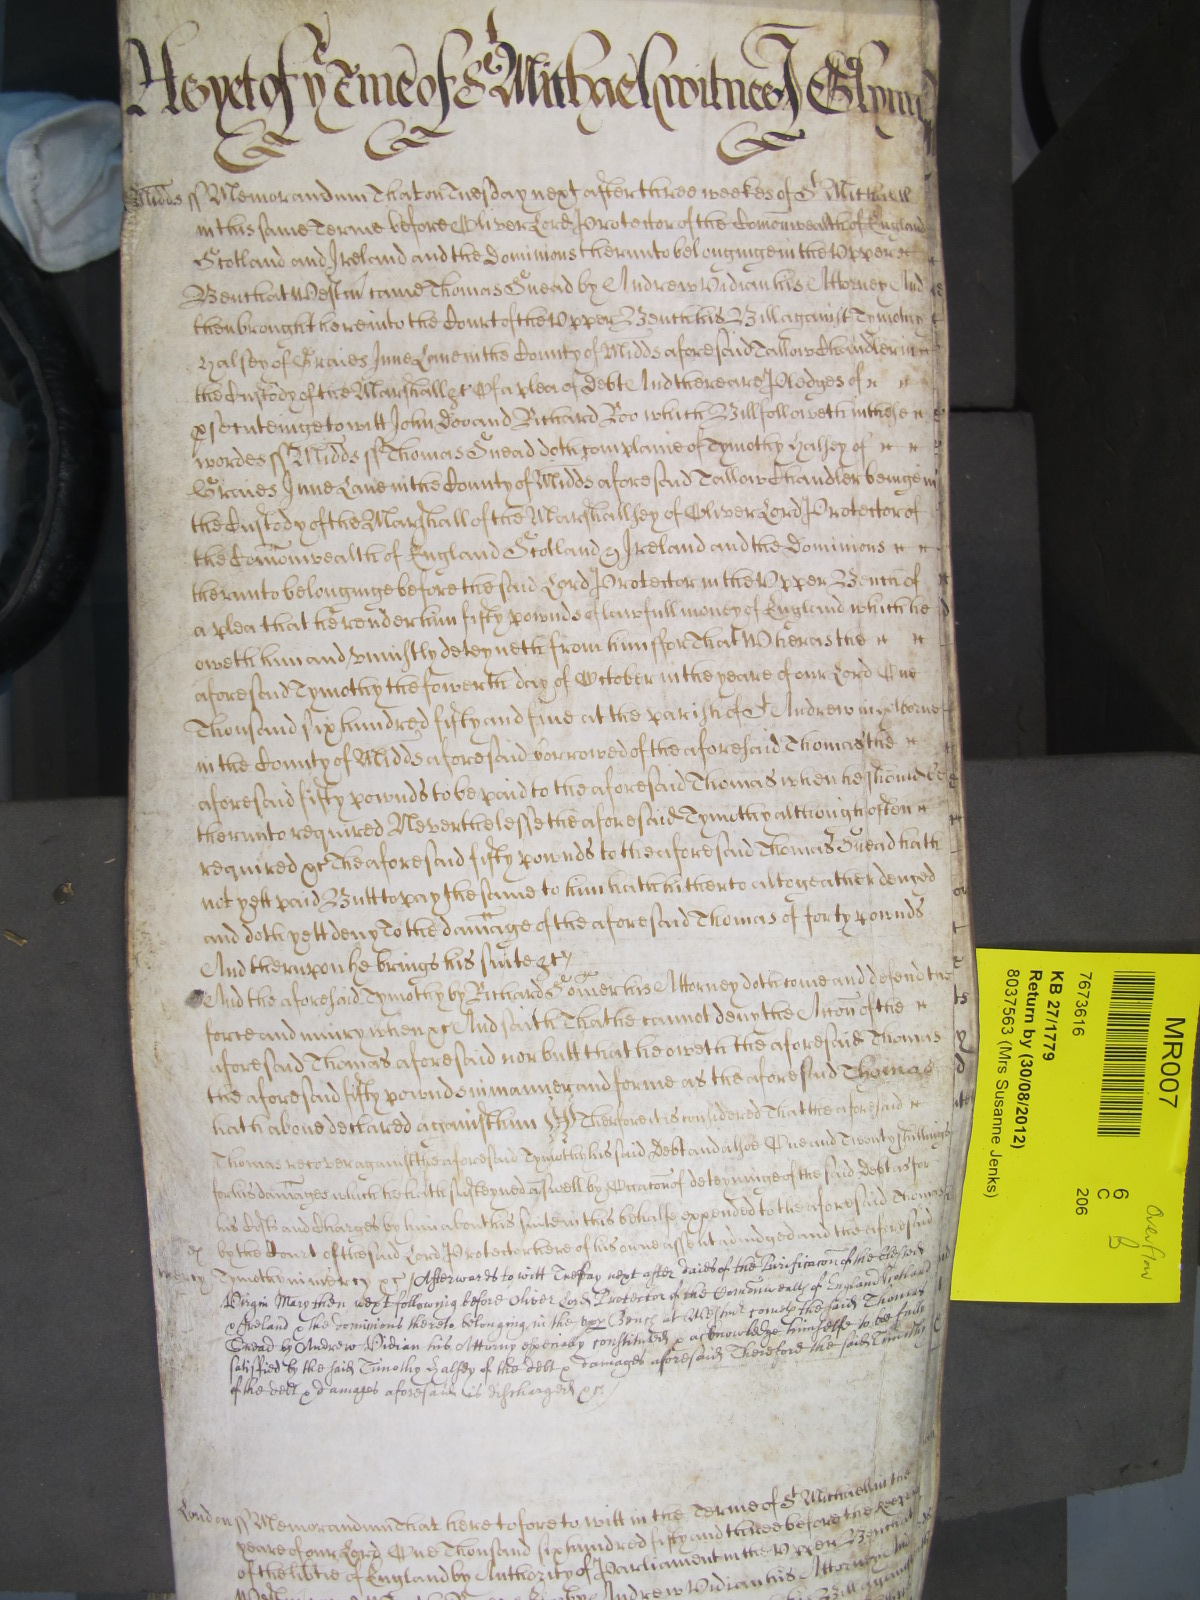 As yet of ye Terme of St Michael witnes J Glynn
Midds ss Memorandum That on Tuesday next after three weekes of St Michaell
in this same Terme before Oliver Lord Protector of the Comonwealth of England
Scotland and Ireland and the Dominions therunto belonginge in the Upper
Bench at Westm came Thomas Snead by Andrew Vidian his Attorney And
then brought here into the Court of the Upper Bench his Bill against Tymothy
Halsey of Graies Inne Lane in the County of Midds aforesaid Tallow Chandler in
the Custody of the Marshall &c Of a plea of Debt And there are Pledges of
psecuteinge to witt John Doo and Richard Roo which Bill followeth in these
wordes ss Midds ss Thomas Snead doth complaine of Tymothy Halsey of
Graies Inne Lane in the County of Midds aforesaid Tallow Chandler beinge in
the Custody of the Marshall of the Marshallsey of Oliver Lord Protector of
the Comonwealth of England Scotland & Ireland and the Dominions
therunto belonginge before the said Lord Protector in the Upper Bench of
a plea that he render him fifty pownds of lawfull money of England which he
oweth him and uniustly deteyneth from him ffor That Wheras the
aforesaid Tymothy the fowerth day of October in the yeare of our Lord One
Thousand six hundred fifty and five at the parish of St Andrew in Holborne
in the County of Midds aforesaid borrowed of the aforesaid Thomas the
aforesaid fifty pownds to be paid to the aforesaid Thomas when he should be
therunto required Neverthelesse the aforesaid Tymothy although often
required &c The aforesaid fifty pownds to the aforesaid Thomas Snead hath
not yett paid Butt to pay the same to him hath hitherto altogeather denyed
and doth yett deny To the damage of the aforesaid Thomas of forty pownds
And therupon he brings his suite &c
And the aforesaid Tymothy by Richard Somer his Attorney doth come and defend the
force and iniury when &c And saith That he cannot deny the Accon of the
aforesaid Thomas aforesaid nor butt that he oweth the aforesaid Thomas
the aforesaid fifty pownds in manner and forme as the aforesaid Thomas
hath above declared against him Therfore it is considered That the aforesaid
Thomas recover against the aforesaid Tymothy his said Debt and alsoe One and Twenty shillings
for his damages which he hath susteyned aswell by Occacon of deteyninge of the said Debt as for
his Costs and Charges by him about his suite in this behalfe expended to the aforesaid Thomas
by the Court of the said Lord Protector here of his owne assent adiudged and the aforesaid
mercy Tymothy in mercy &c Afterwards to witt Tuesday next after daies of the Purificacon of the blessed
Virgin Mary then next following before Oliver Lord Protector of the Commonwealth of England Scotland
& Ireland & the dominions thereto belonging in the upper Bench at Westmr cometh the said Thomas
Snead by Andrew Vidian his Attorny especially constituted & acknowledge himselfe to be fully
satisfied by the said Timothy Halsey of the debt & damages aforesaid Therefore the said Timothy
of the debt & damages aforesaid is discharged &c
London ss Memorandum That heretofore to witt in the Terme of St Michaell in the
yeare of our Lord One Thousand six hundred fifty and three before the Keepers
of the libtie of England by Authority of Parliament in the Upper Bench at
by Andrew Vidian his Attorney And
his Bill against
MR007
7673616
KB 27/1779
Return by (30/08/2012)
8037563 (Mrs Susanne Jenks)
6
C
206
Overflow
B